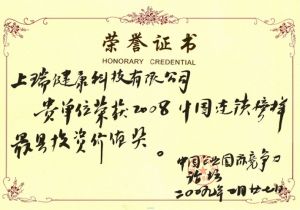 荣誉证书
HONORARY CREDENTIAL
上瑞健康科技有限公司
贵单位荣获2008中国连锁榜样
最具投资价值奖。
中国企业国际竞争力
论坛